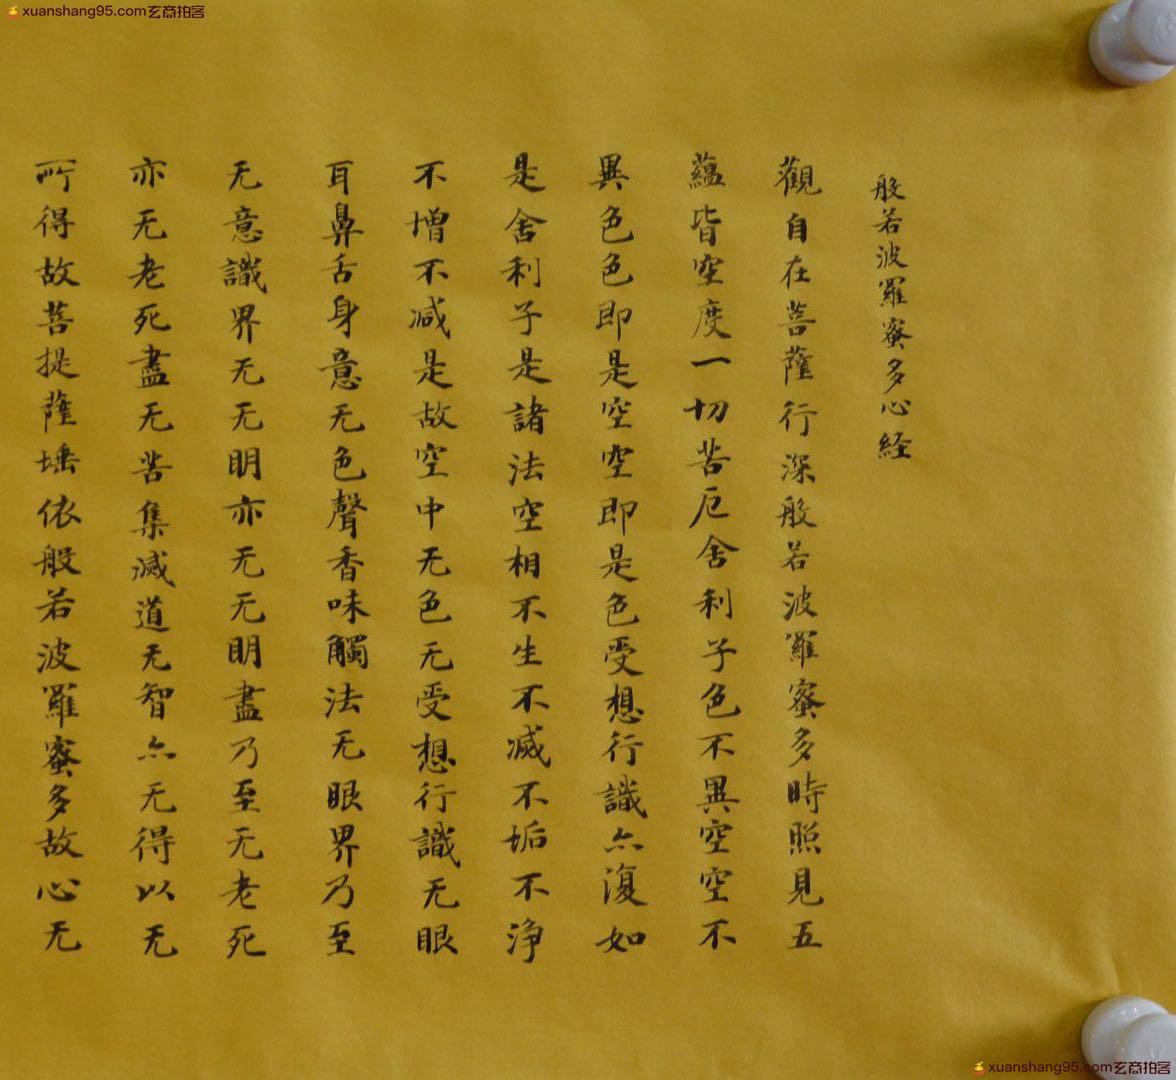 xuanshang95.com玄商拍客
般若波羅蜜多心経
觀自在菩薩行深般若波羅蜜多時照見五
蘊皆空度一切苦厄舍利子色不異空空不
異色色即是空空即是色受想行識亦復如
是舍利子是諸法空相不生不滅不垢不淨
不增不減是故空中无色无受想行識无眼
耳鼻舌身意无色聲香味觸法无眼界乃至
无意識界无无明亦无无明盡乃至无老死
亦无老死盡无苦集滅道无智亦无得以无
所得故菩提薩埵依般若波羅蜜多故心无
xuanshang95.com玄商拍客